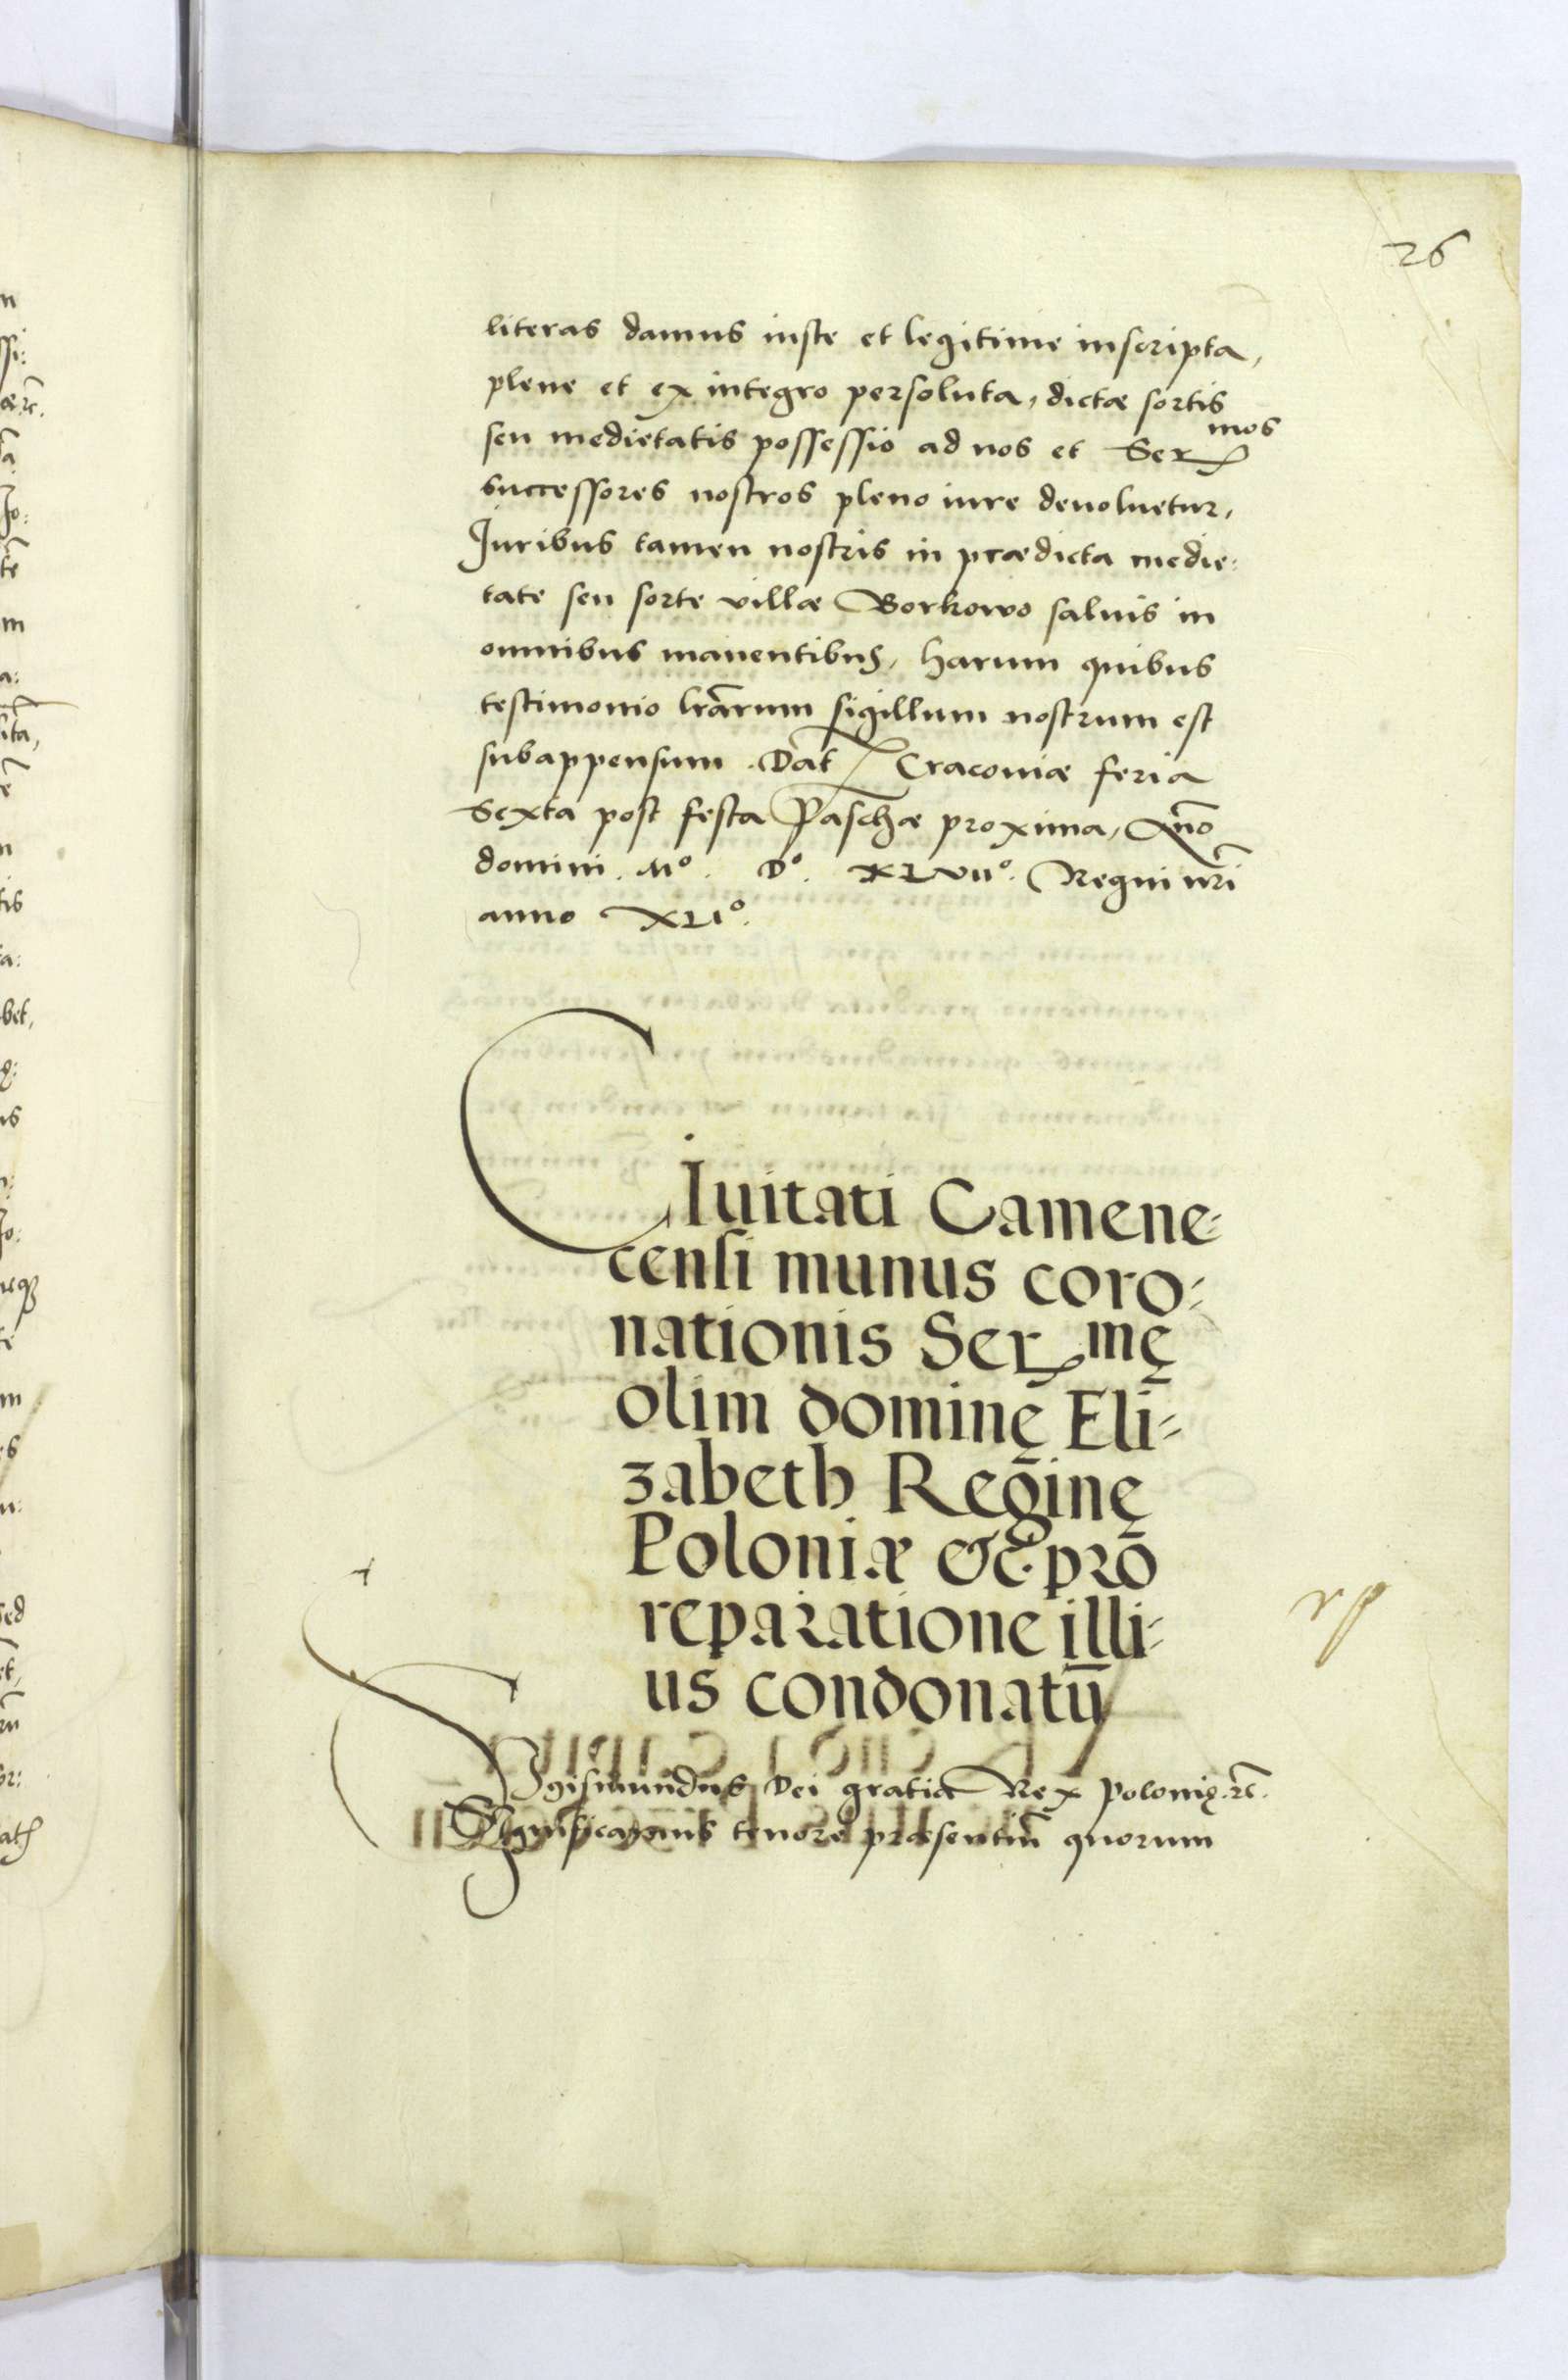 26
literas damus iuste et legitime inscripta,
plene et ex integro persoluta, dictæ sortis
seu medietatis possessio ad nos et Ser mos
successores nostros pleno iure devoluetur,
Juribus tamen nostris in prædicta medie:
tate seu sorte villæ Borkowo saluis in
omnibus manentibus, harum quibus
testimonio lrarum sigillum nostrum est
subappensum. Dat Cracoviæ feria
Sexta post festa Paschæ proxima, Anno
domini. Mº. Dº. XLVIIº. Regni nri
anno XLIº.
CIuitati Camene:
censi munus coro:
nationis Ser mę
olim dominę Eli:
zabeth Reginę
Poloniæ &c. pro
reparatione illi:
us condonatū
Sigismundus Dei gratia Rex Polonię. rc.
Significamus tenore præsentiū quorum